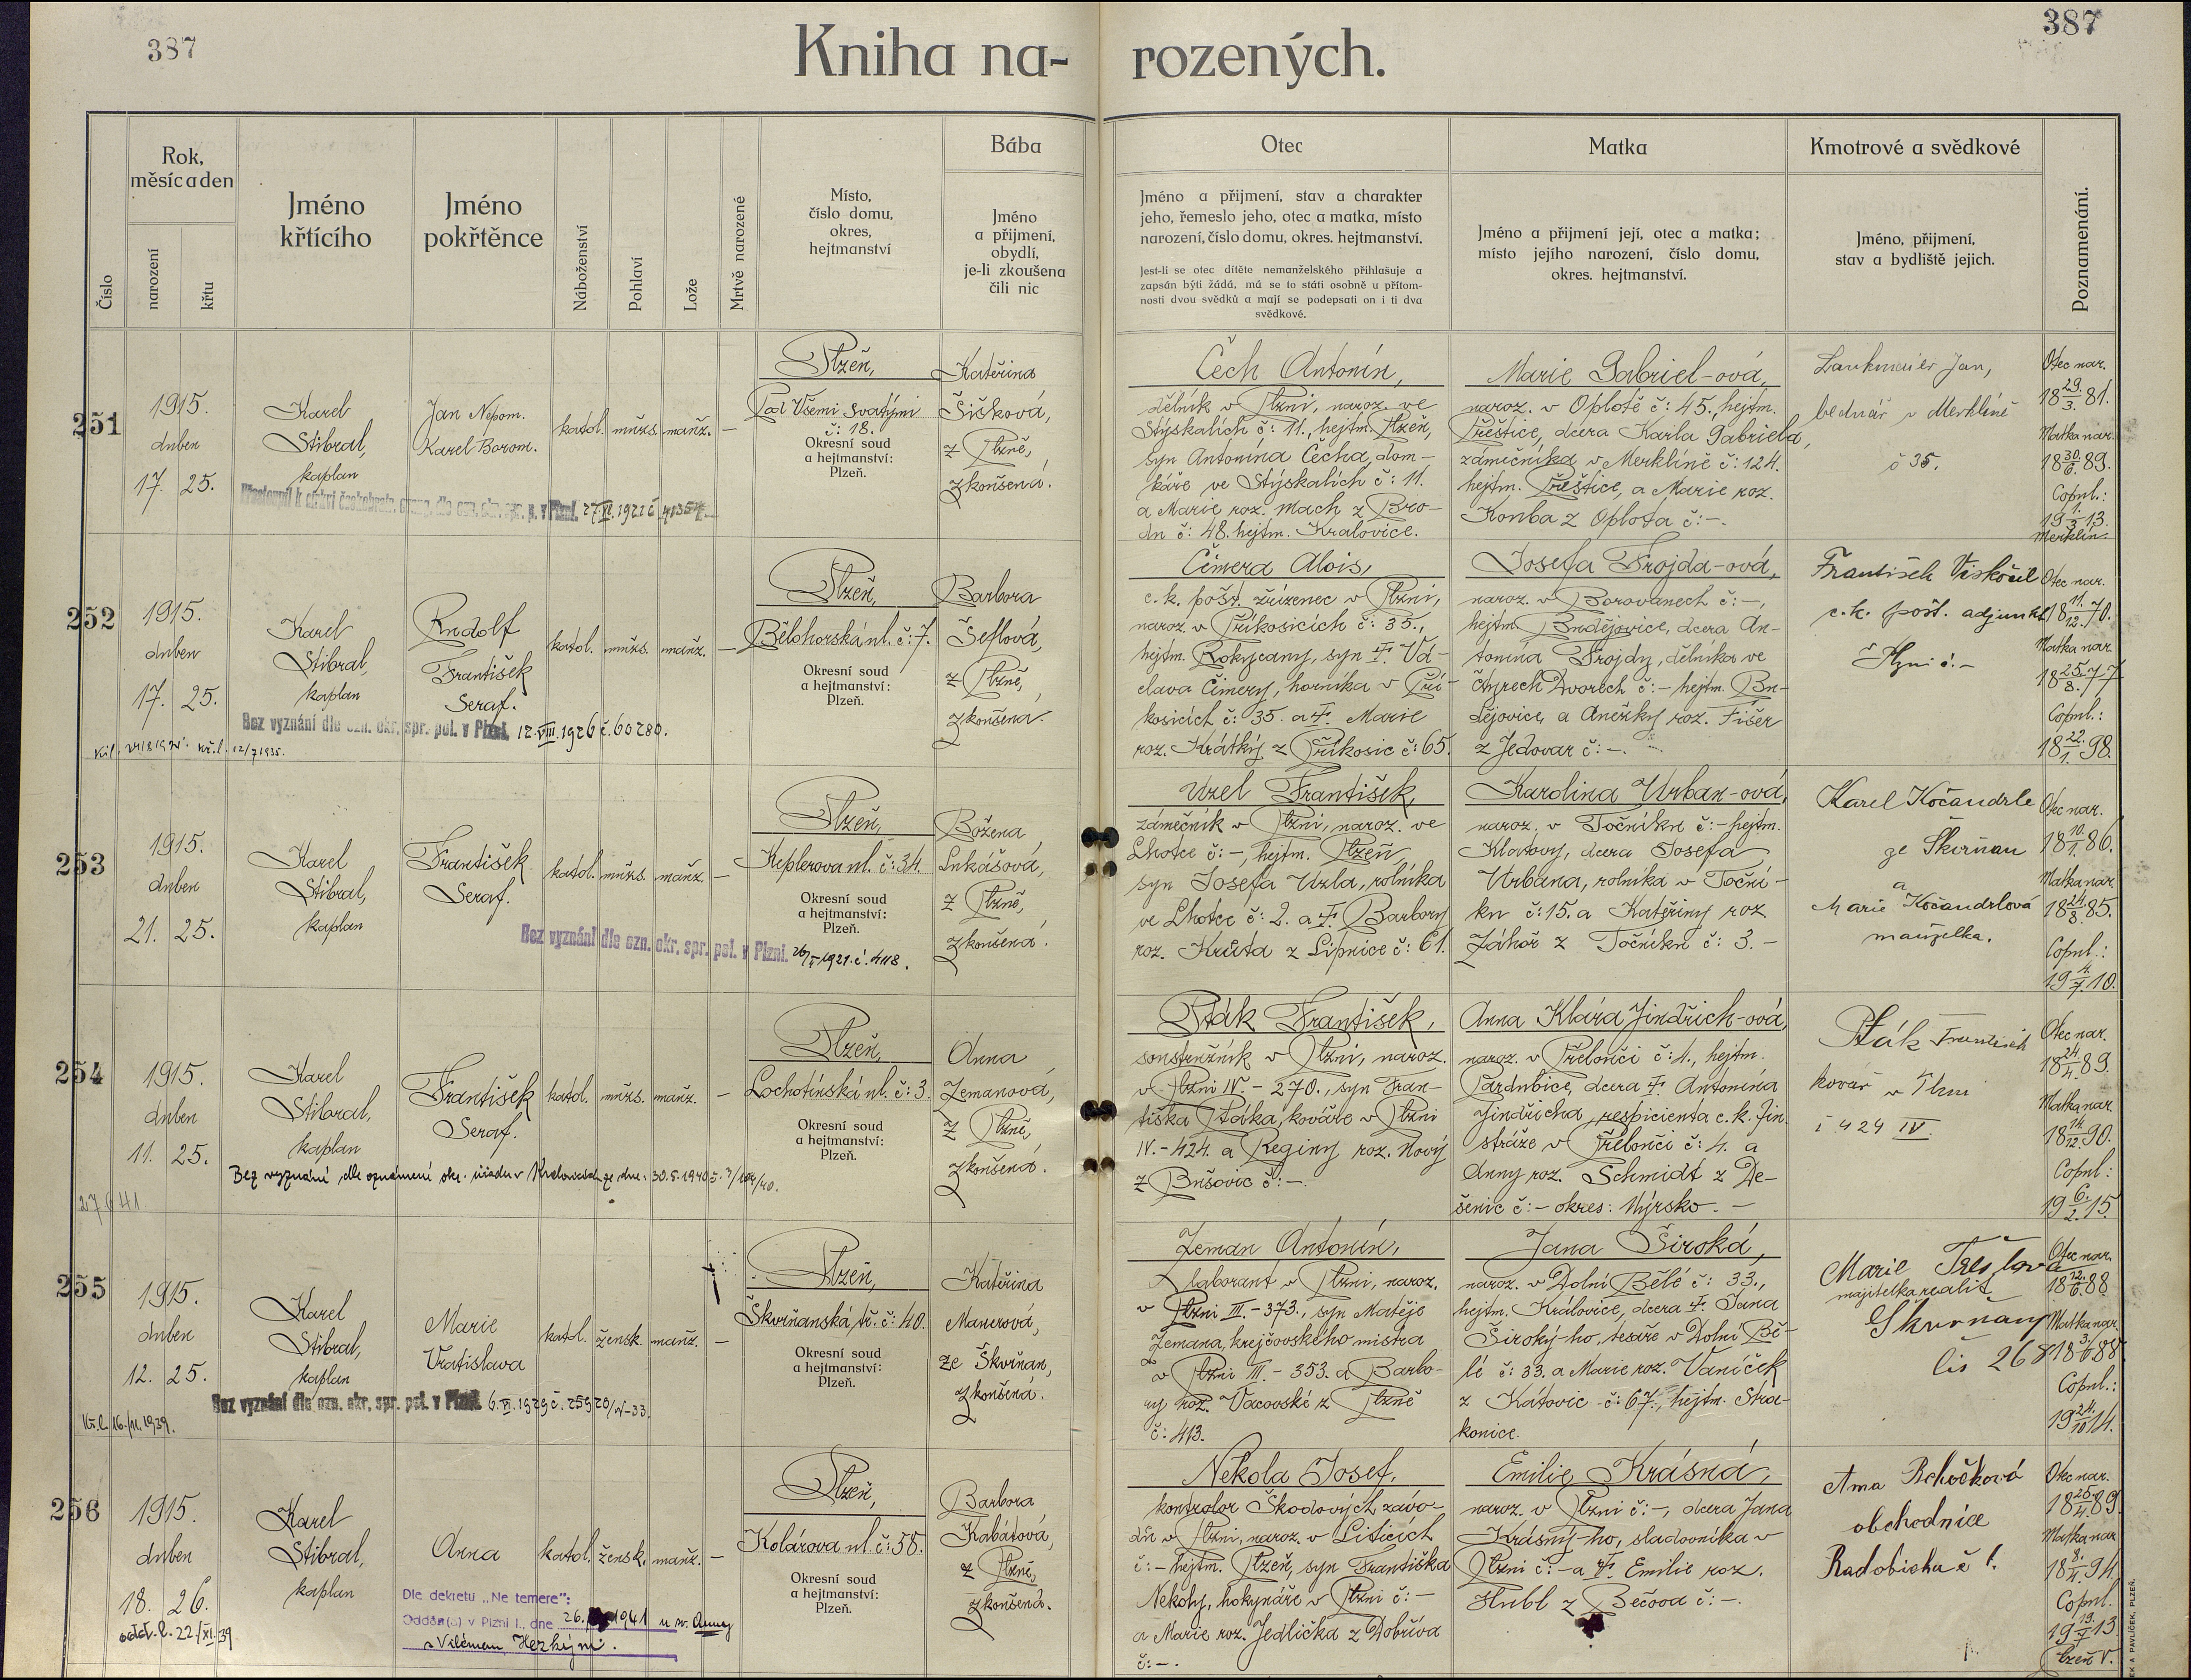 387
387
Kniha na- rozených.
Číslo
Rok,
měsíc a den
narození
křtu
Jméno
křtícího
Jméno
pokřtěnce
Náboženství
Pohlaví
Lože
Mrtvě narozené
Místo,
číslo domu,
okres,
hejtmanství
Bába
Jméno
a přijmení,
obydlí,
je-li zkoušena
čili nic
Otec
Jméno a přijmení, stav a charakter
jeho, řemeslo jeho, otec a matka, místo
narození, číslo domu, okres. hejtmanství.
Jest-li se otec dítěte nemanželského přihlašuje a
zapsán býti žádá, má se to státi osobně u přítom-
nosti dvou svědků a mají se podepsati on i ti dva
svědkové.
Matka
Jméno a přijmení její, otec a matka;
místo jejího narození, číslo domu,
okres. hejtmanství.
Kmotrové a svědkové
Jméno, přijmení,
stav a bydliště jejich.
Poznamenání.
251
1915.
duben
17. 25.
Karel
Stibral,
kaplan
Jan Nepom.
Karel Borom.
katol.
mužs.
manž.
—
Plzeň,
Pod Všemi svatými
č: 18.
Okresní soud
a hejtmanství:
Plzeň.
Kateřina
Šišková,
z Plzně,
zkoušená.
Čech Antonín,
dělník v Plzni, naroz. ve
Stýskalích č: 11., hejtm. Plzeň,
syn Antonína Čecha, dom-
káře ve Stýskalích č: 11.
a Marie roz. Mach z Bro-
du č: 48. hejtm. Kralovice.
Marie Gabriel-ová,
naroz. v Oplotě č: 45., hejtm.
Přeštice, dcera Karla Gabriela,
zámečníka v Merklíně č: 124.
hejtm. Přeštice, a Marie roz.
Kouba z Oplota č: –.
Jan,
bednář v Merklíně
č 35.
Otec nar.
18 29./3. 81.
Matka nar.
18 30./6. 89.
Copul.:
19 1./3. 13.
Merklín.
252
1915.
duben
17. 25.
Karel
Stibral,
kaplan
Rudolf
František
Seraf.
katol.
mužs.
manž.
—
Bez vyznání dle ozn. okr. spr. pol. v Plzni, 12.VIII.1926 č. 60280.
Plzeň,
Bělohorská ul. č: 7.
Okresní soud
a hejtmanství:
Plzeň.
Barbora
Šeflová,
z Plzně,
zkoušena.
Čimera Alois,
c. k. pošt. zřízenec v Plzni,
naroz. v Příkosicích č: 35.,
hejtm. Rokycany, syn † Vá-
clava Čimery, horníka v Pří-
kosicích č: 35. a † Marie
roz. Krátký z Příkosic č: 65.
Josefa Trojda-ová,
naroz. v Borovanech č: –,
hejtm. Budějovice, dcera An-
tonína Trojdy, dělníka ve
Čtyrech Dvorech č: – hejtm. Bu-
dějovice, a Anežky roz. Fišer
z Jedovar č: –.
František Viskočil
c. k. pošt. adjunkt
v Plzni č. –
Otec nar.
18 11./12. 70.
Matka nar.
18 25./8. 77
Copul.:
18 22./1. 98.
253
1915.
duben
21. 25.
Karel
Stibral,
kaplan
František
Seraf.
katol.
mužs.
manž.
—
Bez vyznání dle ozn. okr. spr. pol. v Plzni.
Plzeň,
Keplerova ul. č: 34.
Okresní soud
a hejtmanství:
Plzeň.
Božena
Lukášová,
z Plzně,
zkoušená.
Uzel František,
zámečník v Plzni, naroz. ve
Lhotce č: –, hejtm. Plzeň,
syn Josefa Uzla, rolníka
ve Lhotce č: 2. a † Barbory
roz. Krůta z Lipnice č: 61.
Karolina Urban-ová,
naroz. v Točníku č: – hejtm.
Klatovy, dcera Josefa
Urbana, rolníka v Toční-
ku č: 15. a Kateřiny roz
Záhoř z Točníku č: 3. –
Karel Kočandrle
ze Škvrňan
a
Marie Kočandrlová
manželka.
Otec nar.
18 10./1. 86.
Matka nar.
18 24./8. 85.
Copul.:
19 4./7. 10.
254
1915.
duben
11. 25.
Karel
Stibral,
kaplan
František
Seraf.
katol.
mužs.
manž.
—
Bez vyznání dle oznámení okr. úřadu v Kralovicích ze dne: 30.5.1940
Plzeň,
Lochotínská ul. č: 3.
Okresní soud
a hejtmanství:
Plzeň.
Anna
Zemanová,
z Plzně,
zkoušená.
Pták František,
soustružník v Plzni, naroz.
v Plzni IV. – 270., syn Fran-
tiška Ptáka, kováře v Plzni
IV. – 424. a Reginy roz. Nový
z Bušovic č: –.
Anna Klára Jindřich-ová,
naroz. v Přelouči č: 4., hejtm.
Pardubice, dcera † Antonína
Jindřicha, respicienta c. k. fin.
stráže v Přelouči č: 4. a
Anny roz. Schmidt z De-
šenic č: – okres: Nýrsko. –
Pták František
kovář v Plzni
č 424 IV.
Otec nar.
18 24./4. 89.
Matka nar.
18 14./12. 90.
Copul:
19 6./2. 15.
255
1915.
duben
12. 25.
Karel
Stibral,
kaplan
Marie
Vratislava
katol.
žensk.
manž.
—
Bez vyznání dle ozn. okr. spr. pol. v Plzni 6.VI.1929 č. 25920/V-33.
Kř. l. 16./11. 1939.
Plzeň,
Škvrňanská tř. č: 40.
Okresní soud
a hejtmanství:
Plzeň.
Kateřina
Manerová,
ze Škvrňan,
zkoušená.
Zeman Antonín,
laborant v Plzni, naroz.
v Plzni III. – 373., syn Matěje
Zemana, krejčovského mistra
v Plzni III. – 353. a Barbo-
ry roz. Vacovské z Plzně
č: 413.
Jana Široká,
naroz. v Dolní Bělé č: 33.,
hejtm. Kralovice, dcera † Jana
Široký-ho, tesaře v Dolní Bě-
lé č: 33. a Marie roz. Vaníček
z Katovic č: 67., hejtm. Stra-
konice.
Marie
majitelka realit
Škvrňany
čís 268
Otec nar.
18 12./6. 88
Matka nar.
Copul.:
19 24./10. 14.
256
1915.
duben
18. 26.
Karel
Stibral,
kaplan
Anna
katol.
žensk.
manž.
—
Dle dekretu „Ne temere":
Oddán(a) v Plzni I., dne 26. 1941 u sv. Anny
s Vilémem
Plzeň,
Kolárova ul. č: 58.
Okresní soud
a hejtmanství:
Plzeň.
Barbora
Kabátová,
z Plzně,
zkoušená.
Nekola Josef,
kontrolor Škodových závo-
dů v Plzni, naroz. v Liticích
č: – hejtm. Plzeň, syn Františka
Nekoly, hokynáře v Plzni č: –
a Marie roz. Jedlička z Dobříva
č: –.
Emilie Krásná,
naroz. v Plzni č: –, dcera Jana
Krásný-ho, sladovníka v
Plzni č: – a † Emilie roz.
Hubl z Bečova č: –.
obchodnice
Otec nar.
18 25./4. 89.
Matka nar.
18 8./4. 94.
Copul.
19 19./7. 13.
Plzeň V.